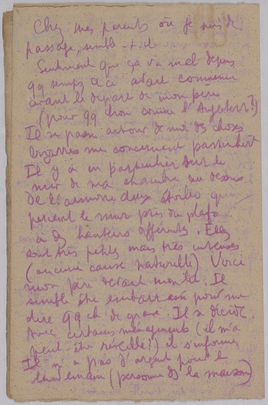 Chez mes parents où je suis de
passage, semble-t-il
Sentiment que ça va mal depuis
qq temps et ce avant
avant le départ de mon père
(pour qq d'Angleterre?)
Il se passe autour de moi des choses
bizarres me concernant particulièrt
Il y a en particulier sur le
mur de ma chambre au dessous
de l'armoire deux étoiles qui
percent le mur près du plafond
à 2 hauteurs différentes. Elles
sont très petites mais très intenses
(aucune cause naturelle) Voici
mon père devant mon lit. Il
semble être embarrassé pour me
dire qq ch de grave. Il se décide.
Avec certains ménagements (il m'a
peut-être réveillé?) il s'informe
Il n'y a pas d'argent pour le
lendemain (personne de la maison)